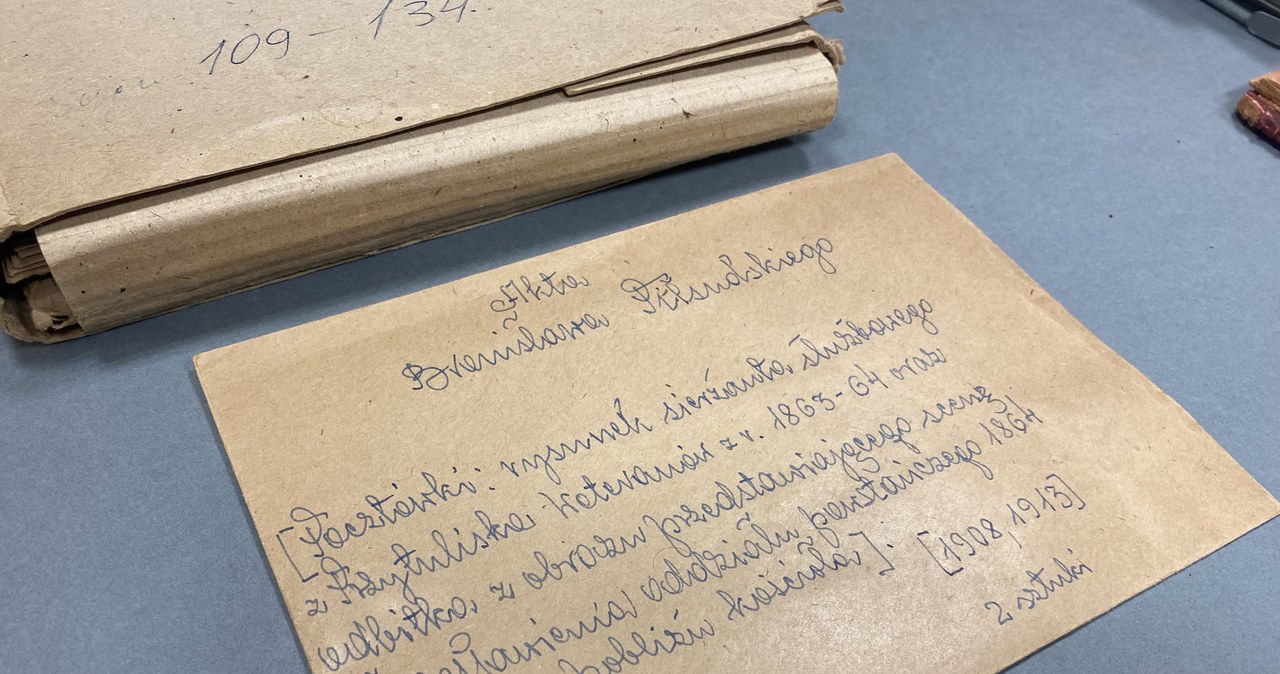 109 - 134.
Akta
Bronisława Piłsudskiego
[Pocztówki: rysunek sierżanta służbowego
z Przytuliska Weteranów z r. 1863-64 oraz
odbitka z obrazu przedstawiającego scenę
oddziału powstańczego 1864
pobliżu kościoła]. [1908, 1913]
2 sztuki